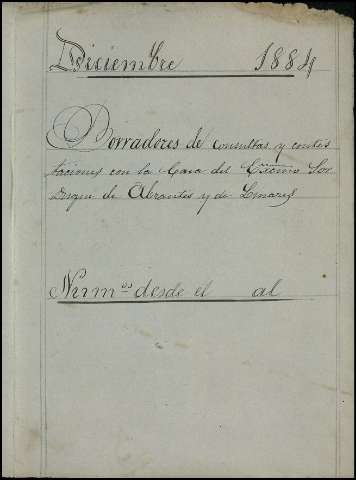 Diciembre 1884
Borradores de consultas y contes
taciones con la Casa del Excmo Sor
Duque de Abrantes y de Linares
Numos desde el al